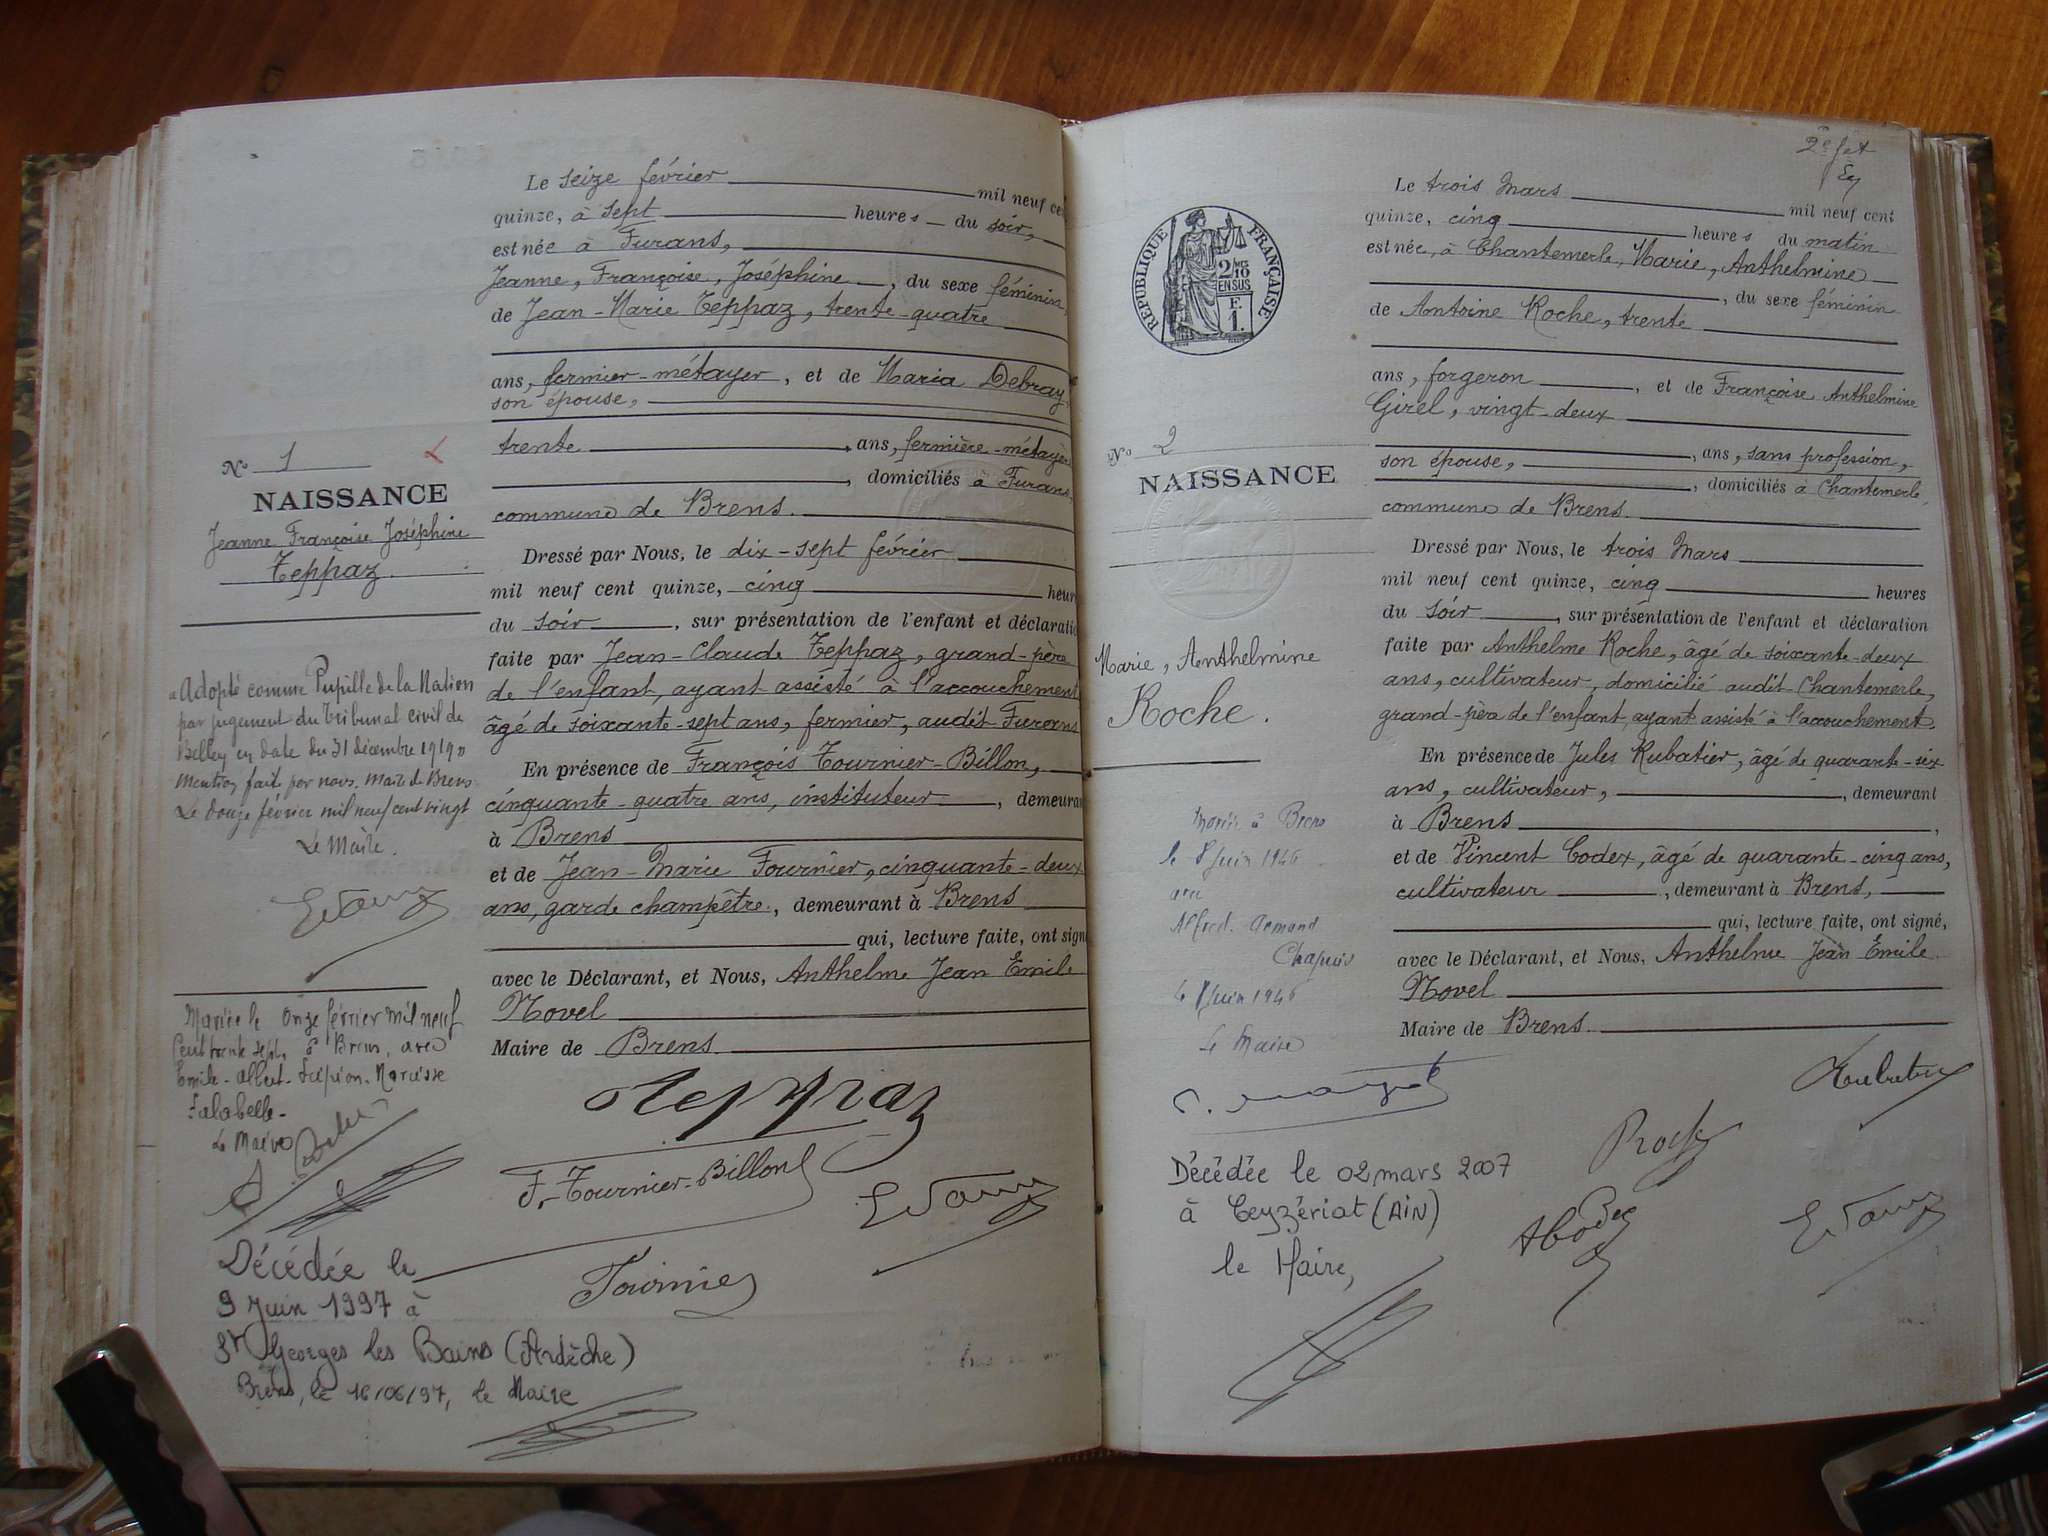 Le seize février mil neuf cen
quinze, à sept heures du soir,
est née à Furans,
Jeanne, Françoise, Joséphine, du sexe féminin,
de Jean-Marie Teppaz, trente-quatre
ans, fermier-métayer, et de Maria Debray
son épouse,
trente ans, fermière-métayère
, domiciliés à Furans,
commune de Brens.
Dressé par Nous, le dix-sept février
mil neuf cent quinze, cinq heur
du soir, sur présentation de l'enfant et déclaratio
faite par Jean-Claude Teppaz, grand-père
de l'enfant, ayant assisté à l'accouchement
âgé de soixante-sept ans, fermier, audit Furans
En présence de François Tournier-Billon,
cinquante-quatre ans, instituteur, demeuran
à Brens
et de Jean-Marie Fournier, cinquante-deux
ans, garde champêtre, demeurant à Brens
qui, lecture faite, ont signé
avec le Déclarant, et Nous, Anthelme Jean Emile
Novel
Maire de Brens.
Teppaz
F. Tournier-Billon
Fournier
No 1
NAISSANCE
Jeanne Françoise Joséphine
Teppaz.
Adopté comme Pupille de la Nation
par jugement du Tribunal civil de
Belley en date du 31 décembre 1919
Mention fait par nous. Maire de Brens
Le douze février mil neuf cent vingt
Le Maire.
Mariée le onze février mil neuf
cent trente sept, à Brens, avec
Emile-Albert-Scipion-Narcisse
Falabelle-
Le Maire
Décédée le
9 Juin 1997 à
St Georges les Bains (Ardèche)
Brens, le 16/06/97, le Maire
2e
REPUBLIQUE FRANÇAISE
2/10
EN SUS
F.
1.
No 2
NAISSANCE
Marie, Anthelmine
Roche.
Mariée à Brens
le 8 Juin 1946
avec
Alfred. Armand
Chapuis
le 8 Juin 1946
Le Maire
Décédée le 02 mars 2007
à Ceyzériat (AIN)
le Maire,
Le trois Mars mil neuf cent
quinze, cinq heures du matin
est née, à Chantemerle, Marie, Anthelmine
, du sexe féminin
de Antoine Roche, trente
ans, forgeron, et de Françoise Anthelmine
Girel, vingt-deux
son épouse, ans, sans profession,
, domiciliés à Chantemerle
commune de Brens.
Dressé par Nous, le trois Mars
mil neuf cent quinze, cinq heures
du soir, sur présentation de l'enfant et déclaration
faite par Anthelme Roche, âgé de soixante-deux
ans, cultivateur, domicilié audit Chantemerle,
grand-père de l'enfant, ayant assisté à l'accouchement.
En présence de Jules Rubatier, âgé de quarante-six
ans, cultivateur, demeurant
à Brens,
et de Vincent Codex, âgé de quarante-cinq ans,
cultivateur, demeurant à Brens,
qui, lecture faite, ont signé,
avec le Déclarant, et Nous, Anthelme Jean Emile
Novel
Maire de Brens.
Roche